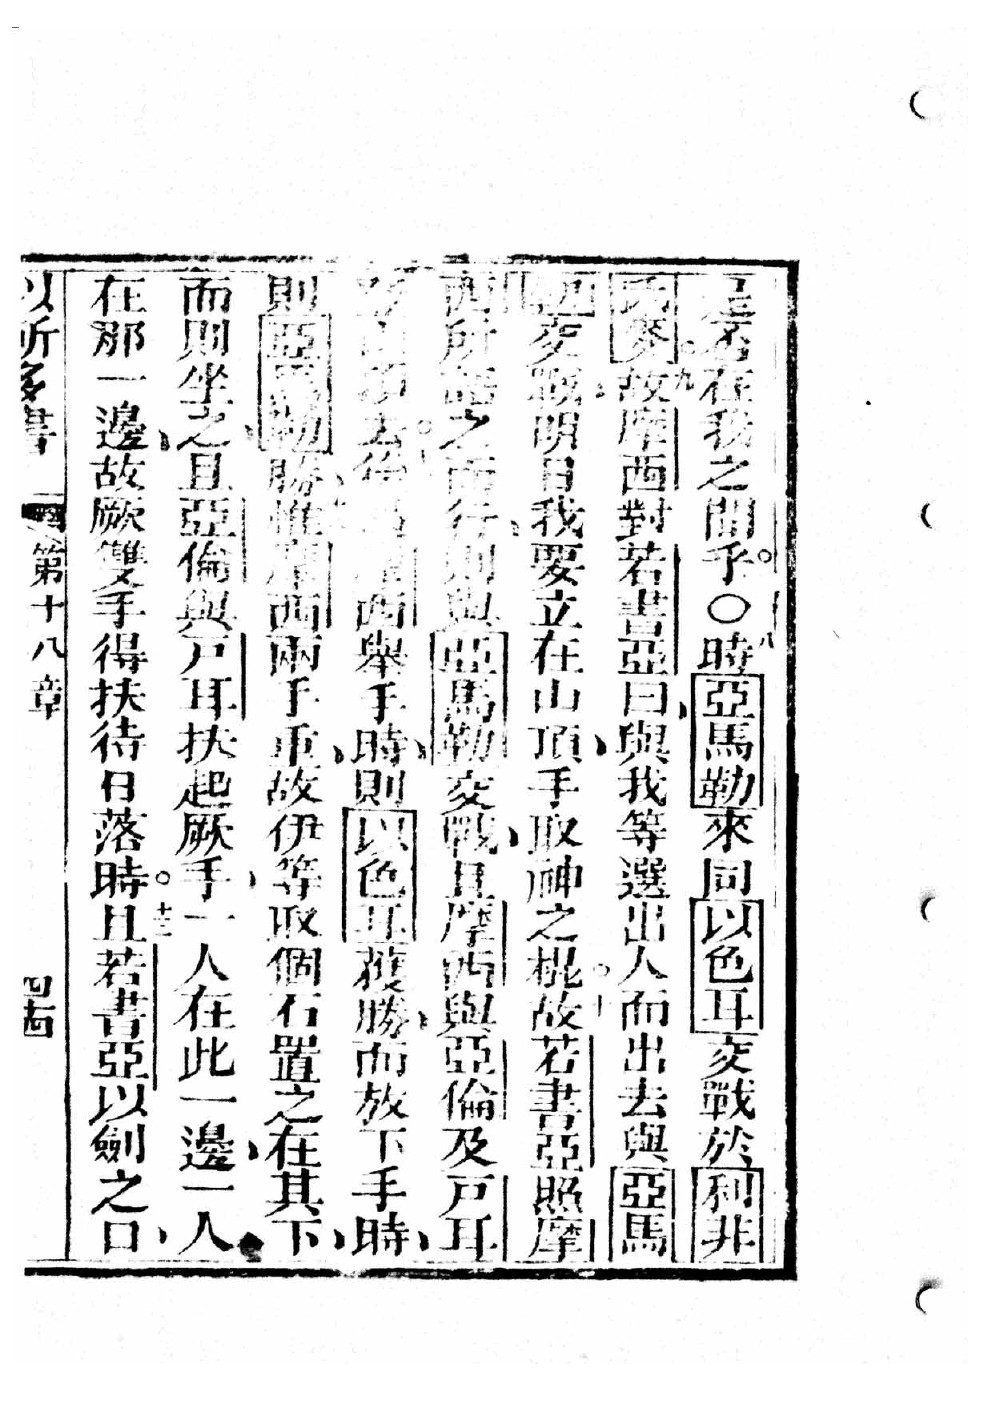 是否在我之間乎。〇八時亞馬勒來同以色耳交戰於利非
氏麥。九故摩西對若書亞曰與我等選出人而出去與亞馬
交戰明日我要立在山頂手取神之棍。十故若書亞照摩
西所 之而行則與亞馬勒交戰且摩西與亞倫及戸耳
去 西舉手時則以色耳獲勝而放下手時
則亞馬勒勝惟摩西兩手重故伊等取個石置之在其下
而則坐之且亞倫與戸耳扶起厥手一人在此一邊一人
在那一邊故厥雙手得扶待日落時。十三且若書亞以劍之口
以所多書 第十八章 四十四